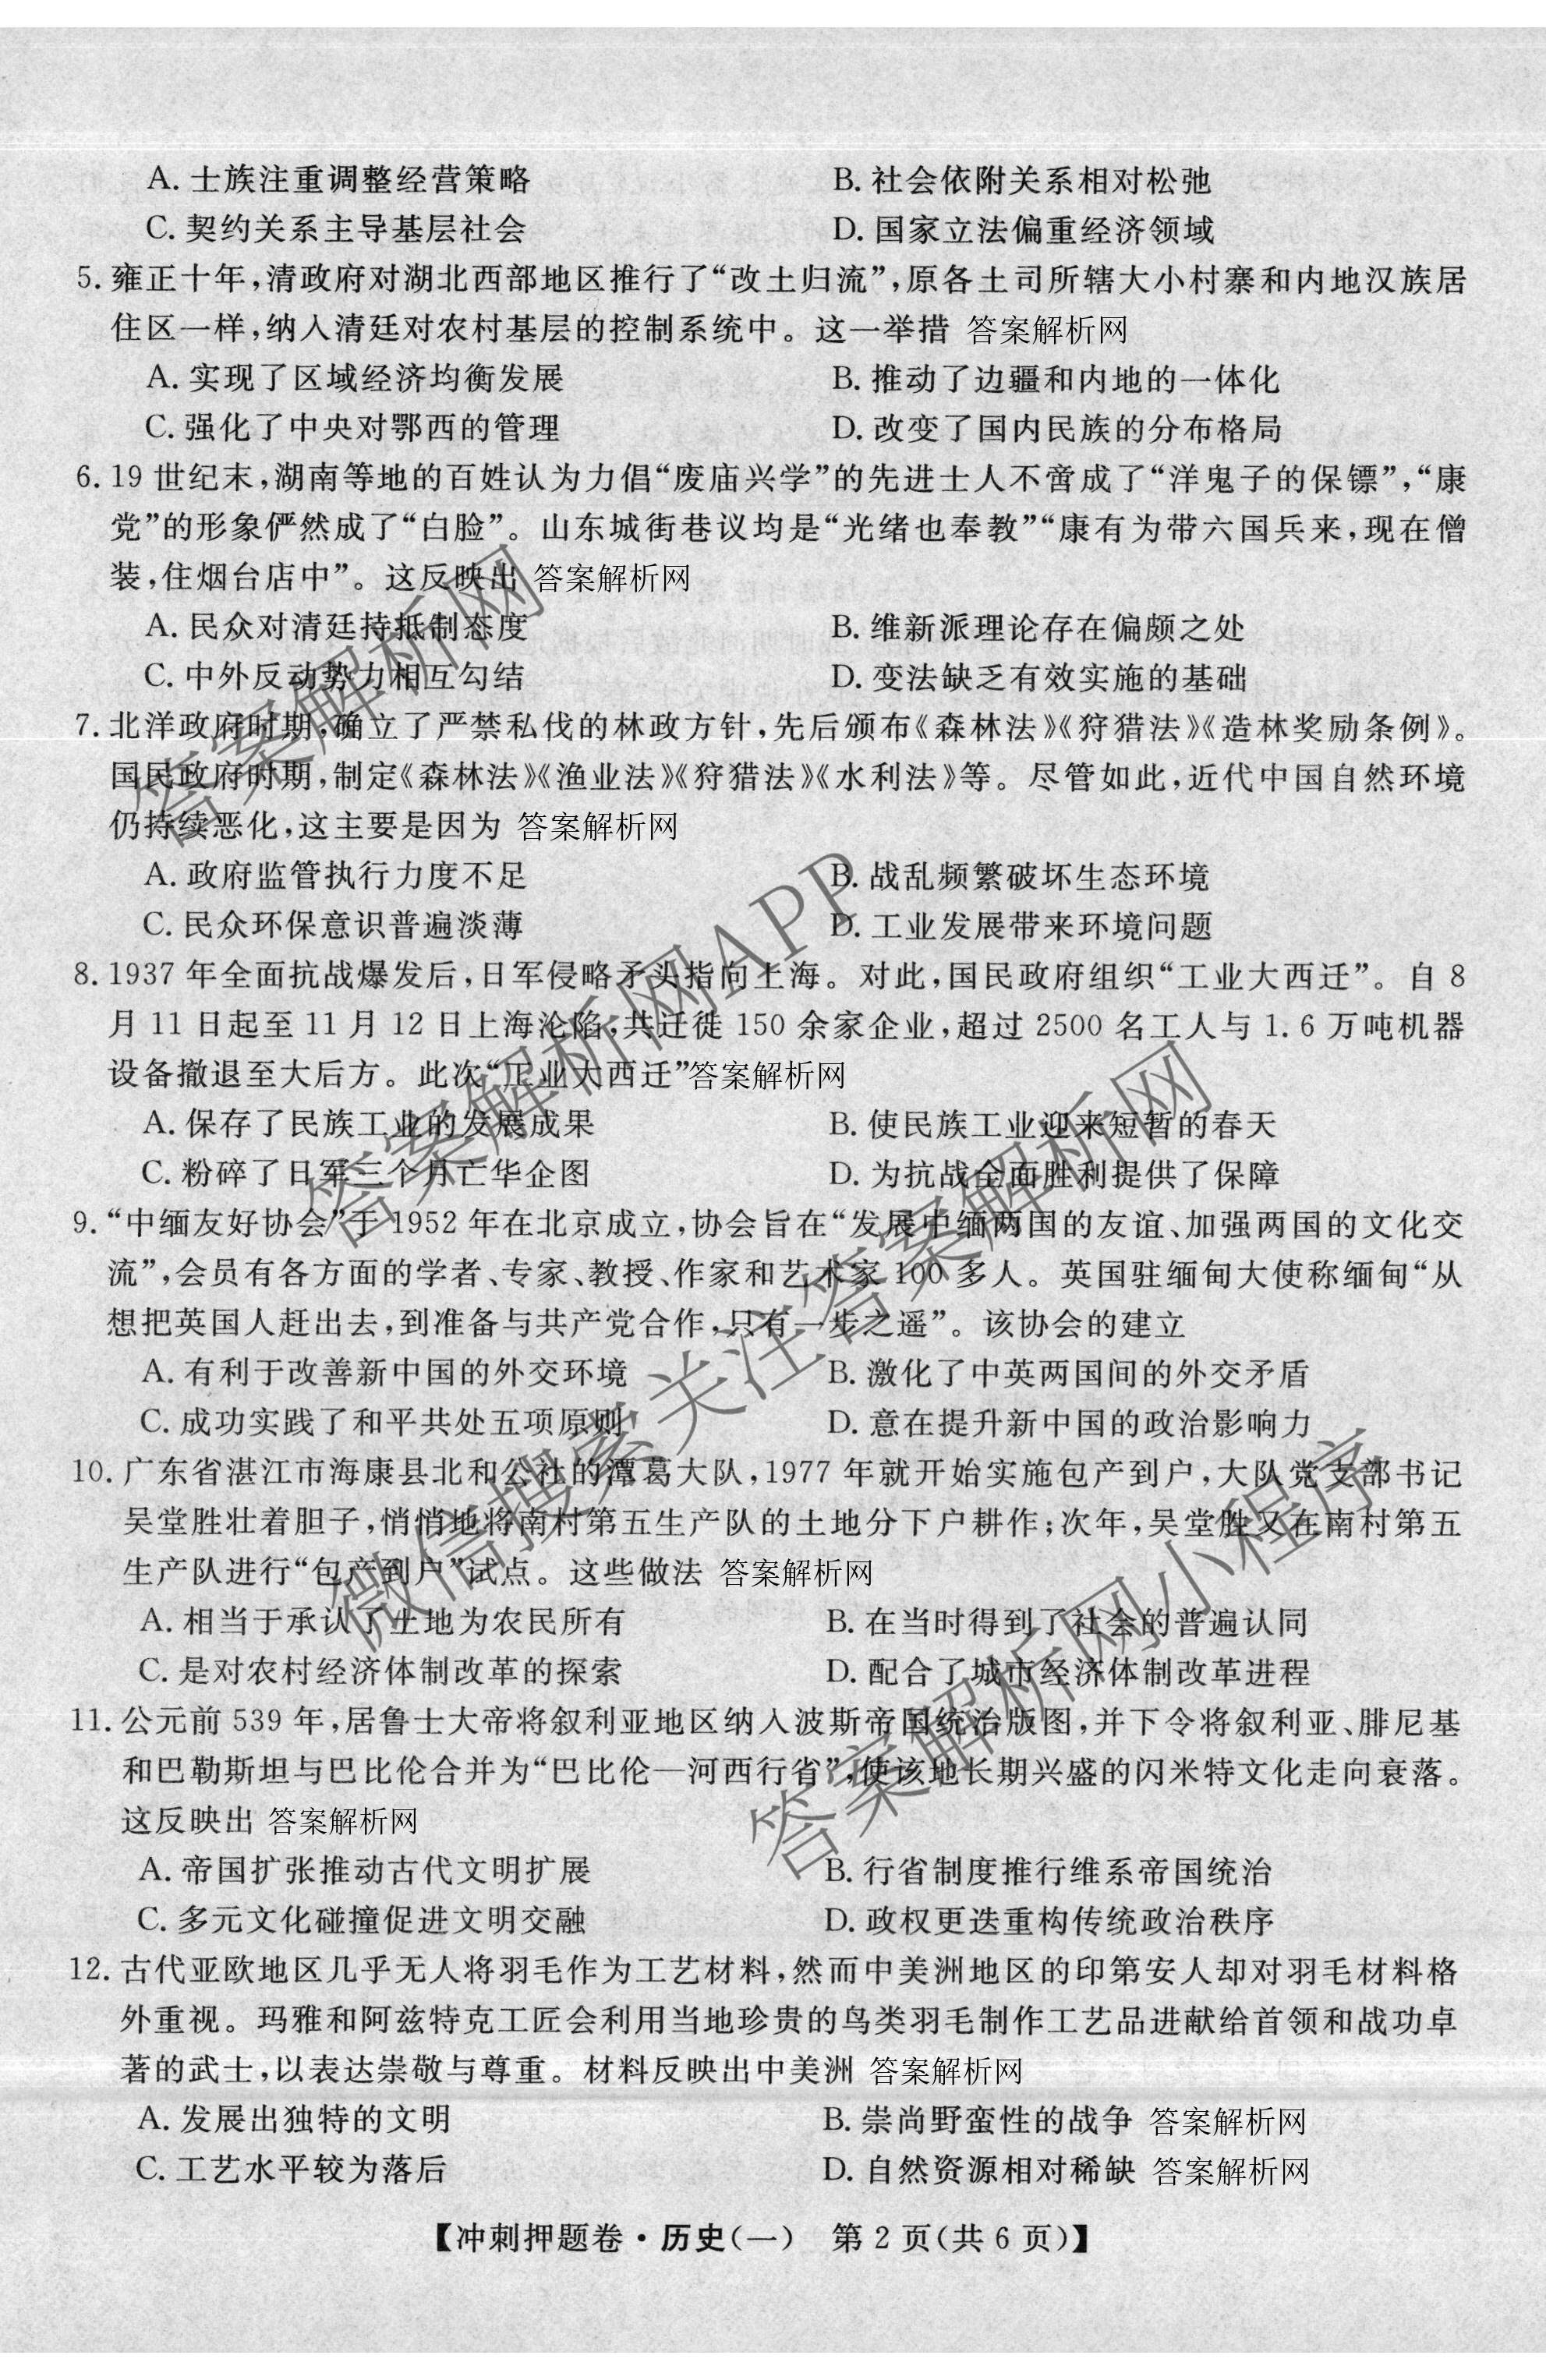 A. 士族注重调整经营策略 B. 社会依附关系相对松弛
C. 契约关系主导基层社会 D. 国家立法偏重经济领域
5. 雍正十年，清政府对湖北西部地区推行了“改土归流”，原各土司所辖大小村寨和内地汉族居
住区一样，纳入清廷对农村基层的控制系统中。这一举措 答案解析网
A. 实现了区域经济均衡发展 B. 推动了边疆和内地的一体化
C. 强化了中央对鄂西的管理 D. 改变了国内民族的分布格局
6. 19 世纪末，湖南等地的百姓认为力倡“废庙兴学”的先进士人不啻成了“洋鬼子的保镖”，“康
党”的形象俨然成了“白脸”。山东城街巷议均是“光绪也奉教”“康有为带六国兵来，现在僧
装，住烟台店中”。这反映出 答案解析网
A. 民众对清廷持抵制态度 B. 维新派理论存在偏颇之处
C. 中外反动势力相互勾结 D. 变法缺乏有效实施的基础
7. 北洋政府时期，确立了严禁私伐的林政方针，先后颁布《森林法》《狩猎法》《造林奖励条例》。
国民政府时期，制定《森林法》《渔业法》《狩猎法》《水利法》等。尽管如此，近代中国自然环境
仍持续恶化，这主要是因为 答案解析网
A. 政府监管执行力度不足 B. 战乱频繁破坏生态环境
C. 民众环保意识普遍淡薄 D. 工业发展带来环境问题
8. 1937 年全面抗战爆发后，日军侵略矛头指向上海。对此，国民政府组织“工业大西迁”。自 8
月 11 日起至 11 月 12 日上海沦陷，共迁徙 150 余家企业，超过 2500 名工人与 1.6 万吨机器
设备撤退至大后方。此次“工业大西迁”答案解析网
A. 保存了民族工业的发展成果 B. 使民族工业迎来短暂的春天
C. 粉碎了日军三个月亡华企图 D. 为抗战全面胜利提供了保障
9. “中缅友好协会”于 1952 年在北京成立，协会旨在“发展中缅两国的友谊、加强两国的文化交
流”，会员有各方面的学者、专家、教授、作家和艺术家 100 多人。英国驻缅甸大使称缅甸“从
想把英国人赶出去，到准备与共产党合作，只有一步之遥”。该协会的建立
A. 有利于改善新中国的外交环境 B. 激化了中英两国间的外交矛盾
C. 成功实践了和平共处五项原则 D. 意在提升新中国的政治影响力
10. 广东省湛江市海康县北和公社的潭葛大队，1977 年就开始实施包产到户，大队党支部书记
吴堂胜壮着胆子，悄悄地将南村第五生产队的土地分下户耕作；次年，吴堂胜又在南村第五
生产队进行“包产到户”试点。这些做法 答案解析网
A. 相当于承认了土地为农民所有 B. 在当时得到了社会的普遍认同
C. 是对农村经济体制改革的探索 D. 配合了城市经济体制改革进程
11. 公元前 539 年，居鲁士大帝将叙利亚地区纳入波斯帝国统治版图，并下令将叙利亚、腓尼基
和巴勒斯坦与巴比伦合并为“巴比伦—河西行省”，使该地长期兴盛的闪米特文化走向衰落。
这反映出 答案解析网
A. 帝国扩张推动古代文明扩展 B. 行省制度推行维系帝国统治
C. 多元文化碰撞促进文明交融 D. 政权更迭重构传统政治秩序
12. 古代亚欧地区几乎无人将羽毛作为工艺材料，然而中美洲地区的印第安人却对羽毛材料格
外重视。玛雅和阿兹特克工匠会利用当地珍贵的鸟类羽毛制作工艺品进献给首领和战功卓
著的武士，以表达崇敬与尊重。材料反映出中美洲 答案解析网
A. 发展出独特的文明 B. 崇尚野蛮性的战争 答案解析网
C. 工艺水平较为落后 D. 自然资源相对稀缺 答案解析网
【冲刺押题卷·历史（一） 第 2 页（共 6 页）】
答案解析网
答案解析网APP
微信搜索关注答案解析网
答案解析网小程序